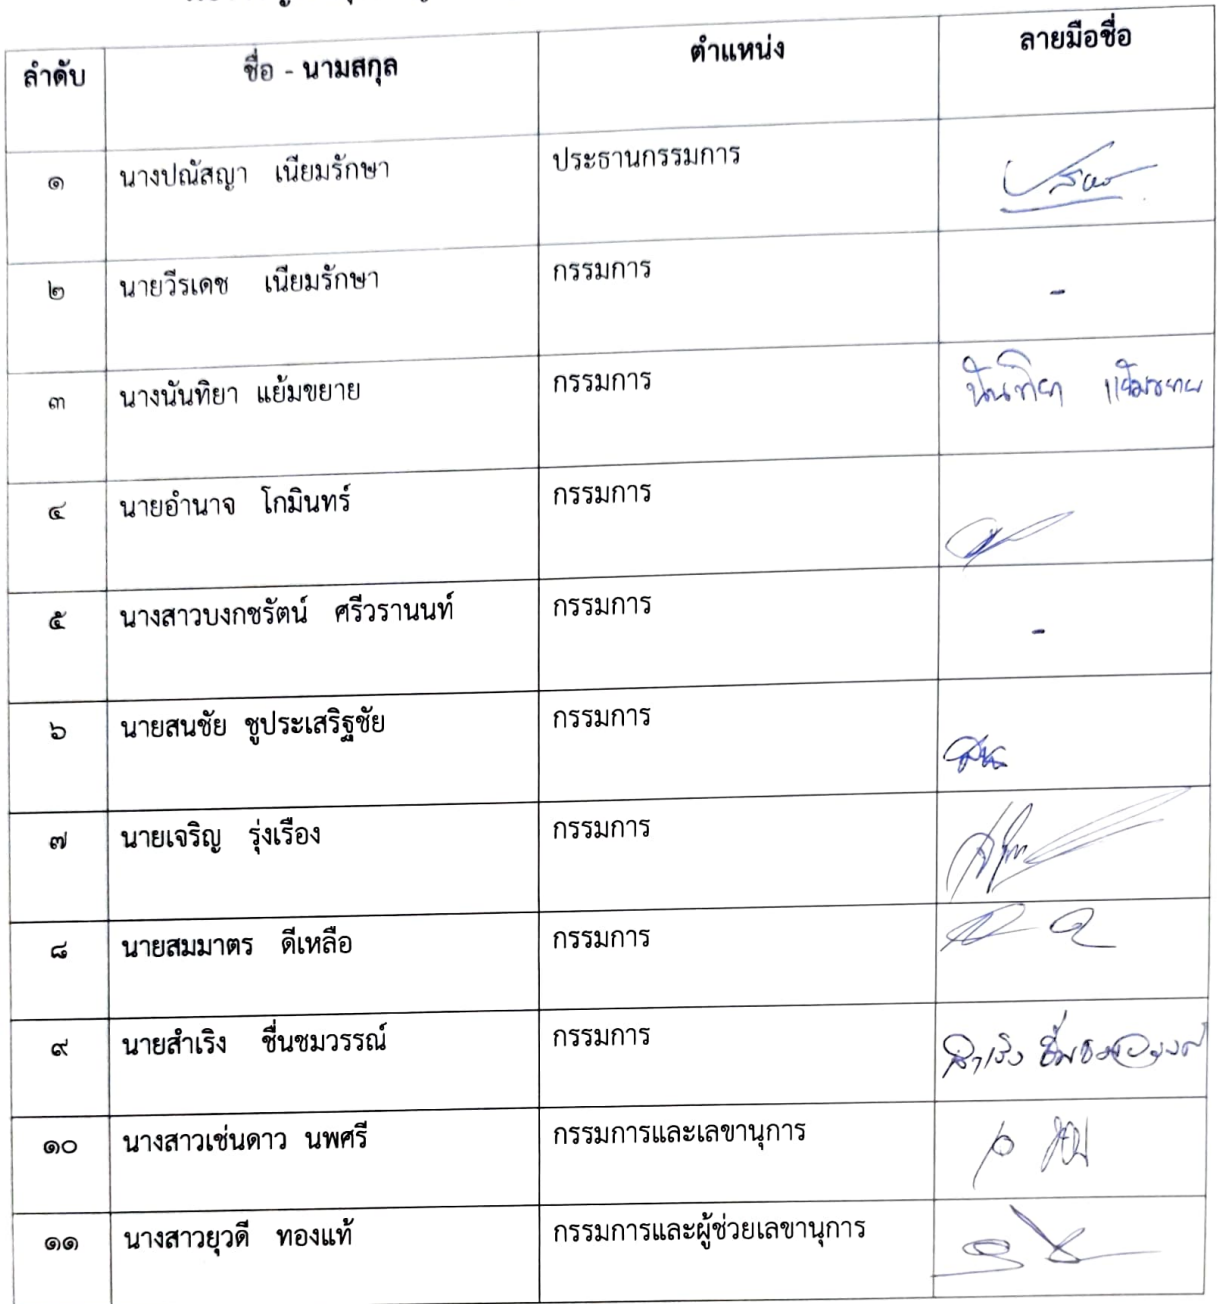 ลำดับ ชื่อ - นามสกุล ตำแหน่ง ลายมือชื่อ
๑ นางปณัสญา เนียมรักษา ประธานกรรมการ
๒ นายวีรเดช เนียมรักษา กรรมการ -
๓ นางนันทิยา แย้มขยาย กรรมการ นันทิยา แย้มขยาย
๔ นายอำนาจ โกมินทร์ กรรมการ
๕ นางสาวบงกชรัตน์ ศรีวรานนท์ กรรมการ -
๖ นายสนชัย ชูประเสริฐชัย กรรมการ
๗ นายเจริญ รุ่งเรือง กรรมการ
๘ นายสมมาตร ดีเหลือ กรรมการ
๙ นายสำเริง ชื่นชมวรรณ์ กรรมการ สำเริง
๑๐ นางสาวเช่นดาว นพศรี กรรมการและเลขานุการ
๑๑ นางสาวยุวดี ทองแท้ กรรมการและผู้ช่วยเลขานุการ